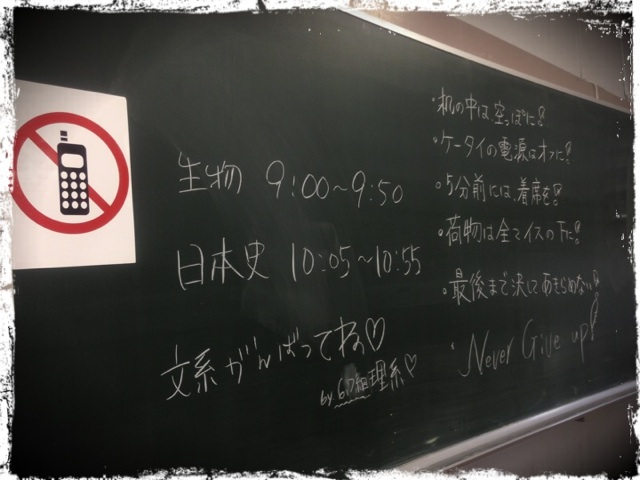 生物 9:00~9:50
日本史 10:05~10:55
文系がんばってね♡
by 6D組理系♡
・机の中は空っぽに!
・ケータイの電源はオフに!
・5分前には、着席を!
・荷物は全てイスの下に!
・最後まで決してあきらめない!
・Never Give up!